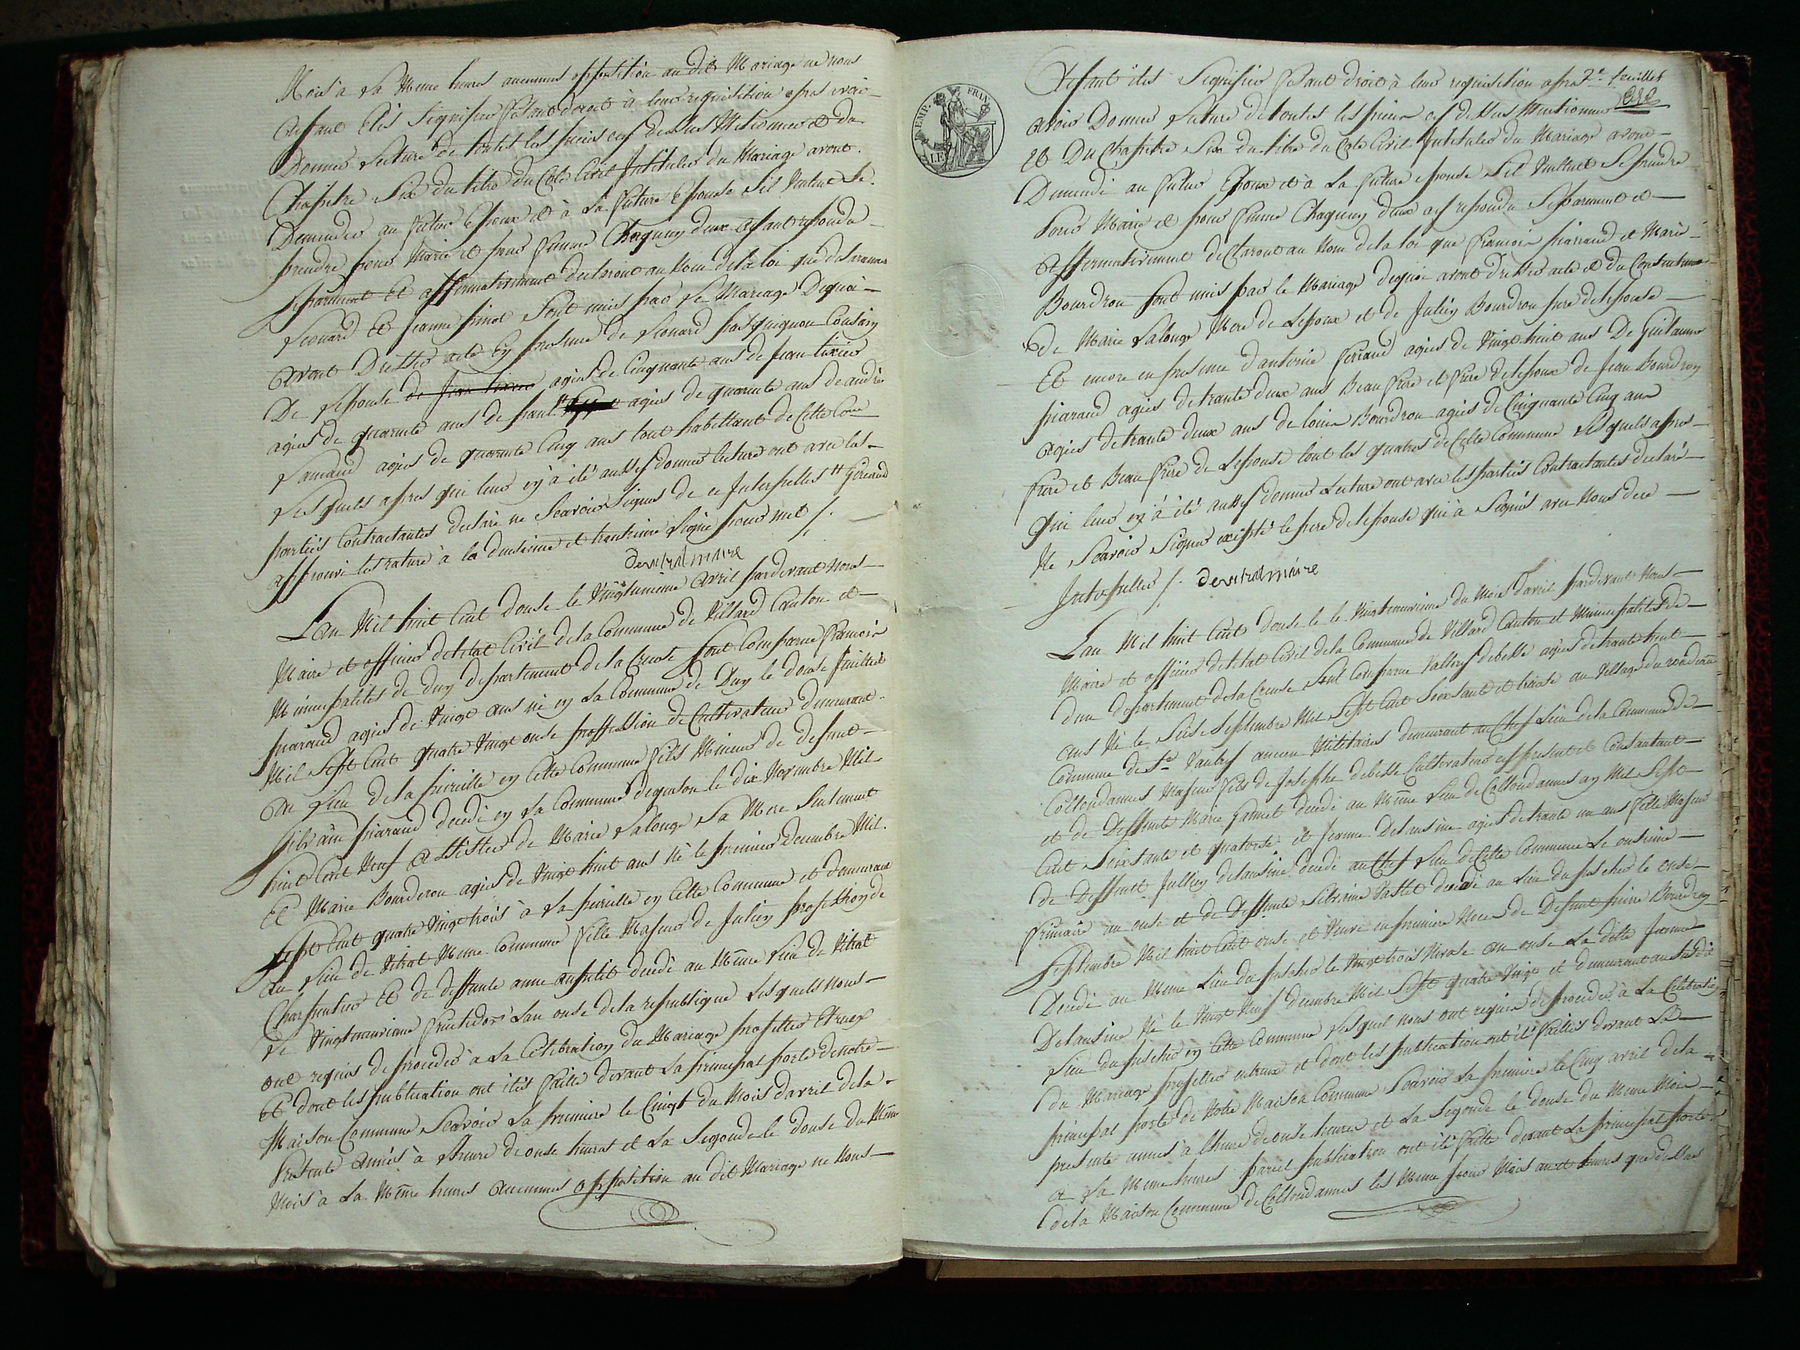 Mois à la Meme heure aucunnes opposition au dit Mariage ne nous
Ayant étés Signifier fesant droit à leur requisition apres avoir
Donner lecture de toutes les pieces cy dessus Metionner et du
Chapitre Six du titre du Code Civil Intituler du Mariage avont
Demander au futur Epoux et à la future Epouse Sil Veulent Se
prendre pour Marie et pour femme Chaquun deux Ayant repondu
Separement et affirmativement declaront au Nom de la loi que
Leonard et Jeanne pinot Sont unis par le Mariage Dequoi
Avont Dresser acte En presence de Leonard pasquignon Cousain
De lepouse agies de Cinquante ans de Jean
agies de quarante ans de paul agies de quarante ans de andré
Lamaud agies de quarante Cinq ans tout habittant de Cette Com
Lesquels apres qui leur en à été aussy donner lecture ont avec les
parties Contractantes declaré ne Scavoir Signer de ce Interpelles
approuvé les rature à la douzieme et treizieme Ligne pour mot /.
maire
Lan Mil huit Cent douse le Vingtuneime avril pardevant Nous
Maire et officier deletat Civil dela Commune de Villard Canton et
Municipalités de Dun departement de la Creuse Sont Comparue françois
piaraud agies de Vingt ans né en la Commune de Dun le douse Juillet
Mil Sept Cent quatre Vingt onse proffession de Cultivateur demeurant
au Lieu de la pieruille en Cette Commune fils Mineur de defunt
Silvain piaraud decedé en la Commune le dix Novembre Mil
huit Cent Neuf Assister de Marie Lalonge Sa Mere Seulement
Et Marie Bourderon agies de Vingt huit ans né le premier Decembre Mil
Sept Cent quatre Vingt trois à la pieruille en Cette Commune et demeurant
au Lieu de Vitrat Meme Commune fille Majeur de Julien proffession de
Charpentier Et de deffunte anne decedé au Même Lieu de Vitrat
Le Vingtneuvieme fructidor Lan onse de la republique Lesquels nous
ont requis de proceder à la Celebration du Mariage projetter Entreux
Et dont les publication ont étés faitte devant la principal porte de notre
Maison Commune Scavoir la premiere le Cinq du Mois davril de la
presente année à lheure de onse heures et la Segonde le douse du Même
Mois à la Même heures Aucunnes opposition au dit Mariage ne Nous
2e. feuillet
Ayant étés Signifier fesant droit à leur requisition apres
avoir Donner lecture de toutes les pieces cy dessus Mentionner
Et Du Chapitre Six du titre du Code Civil Intituler du Mariage avont
Demandé au futur Epoux et à la future epouse Sil Veullent Se prendre
pour Marie et pour femme Chaquun deux ayt repondu Separement et
affirmativement declaront au Nom de la loi que françois piaraud et Marie
Bourdron Sont unis par le Mariage dequoi avont dresser acte et du Consentement
de Marie Lalonge Mere de Lepoux et de Julien Bourdron pere de lepouse
Et encore en presence dantoine agies de Vingt huit ans De Guilaume
piaraud agies de trante deux ans Beau frere et frere de lepoux de Jean Bourdron
agies de trante deux ans de Bourdron agies de Cinquante Cinq ans
frere et Beau frere de Lepouse tout les quatres de Cette Commune Lesquels apres
qui leur en à été aussy donner Lecture ont avec les parties Contractantes declaré
Ne Scavoir Signer excepté le pere de lepouse qui à Signés avec Nous de ce
Interpelles /. maire
Lan Mil huit Cent douse le Vingtneuvieme du Mois davril pardevant Nous
Maire et officier deletat Civil de la Commune de Villard Canton et Municipalités de
Dun departement de la Creuse Sont Comparue agies de trante huit
ans Né le Seise Septembre Mil Sept Cent Soixante et treise au Village
Commune de St. Vaulry ancien Militaires demeurant au Chef Lieu de la Commune de
Colondannes Majeur fils de Josephe debelle Cultivateur cy present et Consentant
et de Deffunte Marie decedé au Même Lieu de Colondannes en Mil Sept
Cent Soixante et quatorse et Jeanne Delausine agies de trante un ans fille Majeur
de Deffunt Jullien delausine decedé au Chef Lieu de Cette Commune Le onsieme
frimaire an onse et de Deffunte Silvaine decedé au Lieu du le onse
Septembre Mil huit Cent onse et Veuve en premiere Noces de Defunt pierre Bourdron
Decedé au Meme Lieu du le Vingt trois Nivose an onse La dite Jeanne
Delausine Né le Vingt Neuf decembre Mil Sept quatre Vingt et demeurant au Susdit
Lieu du en Cette Commune Lesquel Nous ont requis de proceder à La Celebration
du Mariage projetter entreux et dont les publication ont été faittes devant La
principal porte de Notre Maison Commune Scavoir La premiere le Cinq avril de la
presente année à lheure de onse heures et La Segonde le douse du Meme Mois
a la Meme heures pareil publication ont été faitte devant La principal porte
de la Maison Commune de Colondannes les Meme jours Mois an et heures que dessus
EMP. FRAN.
LE